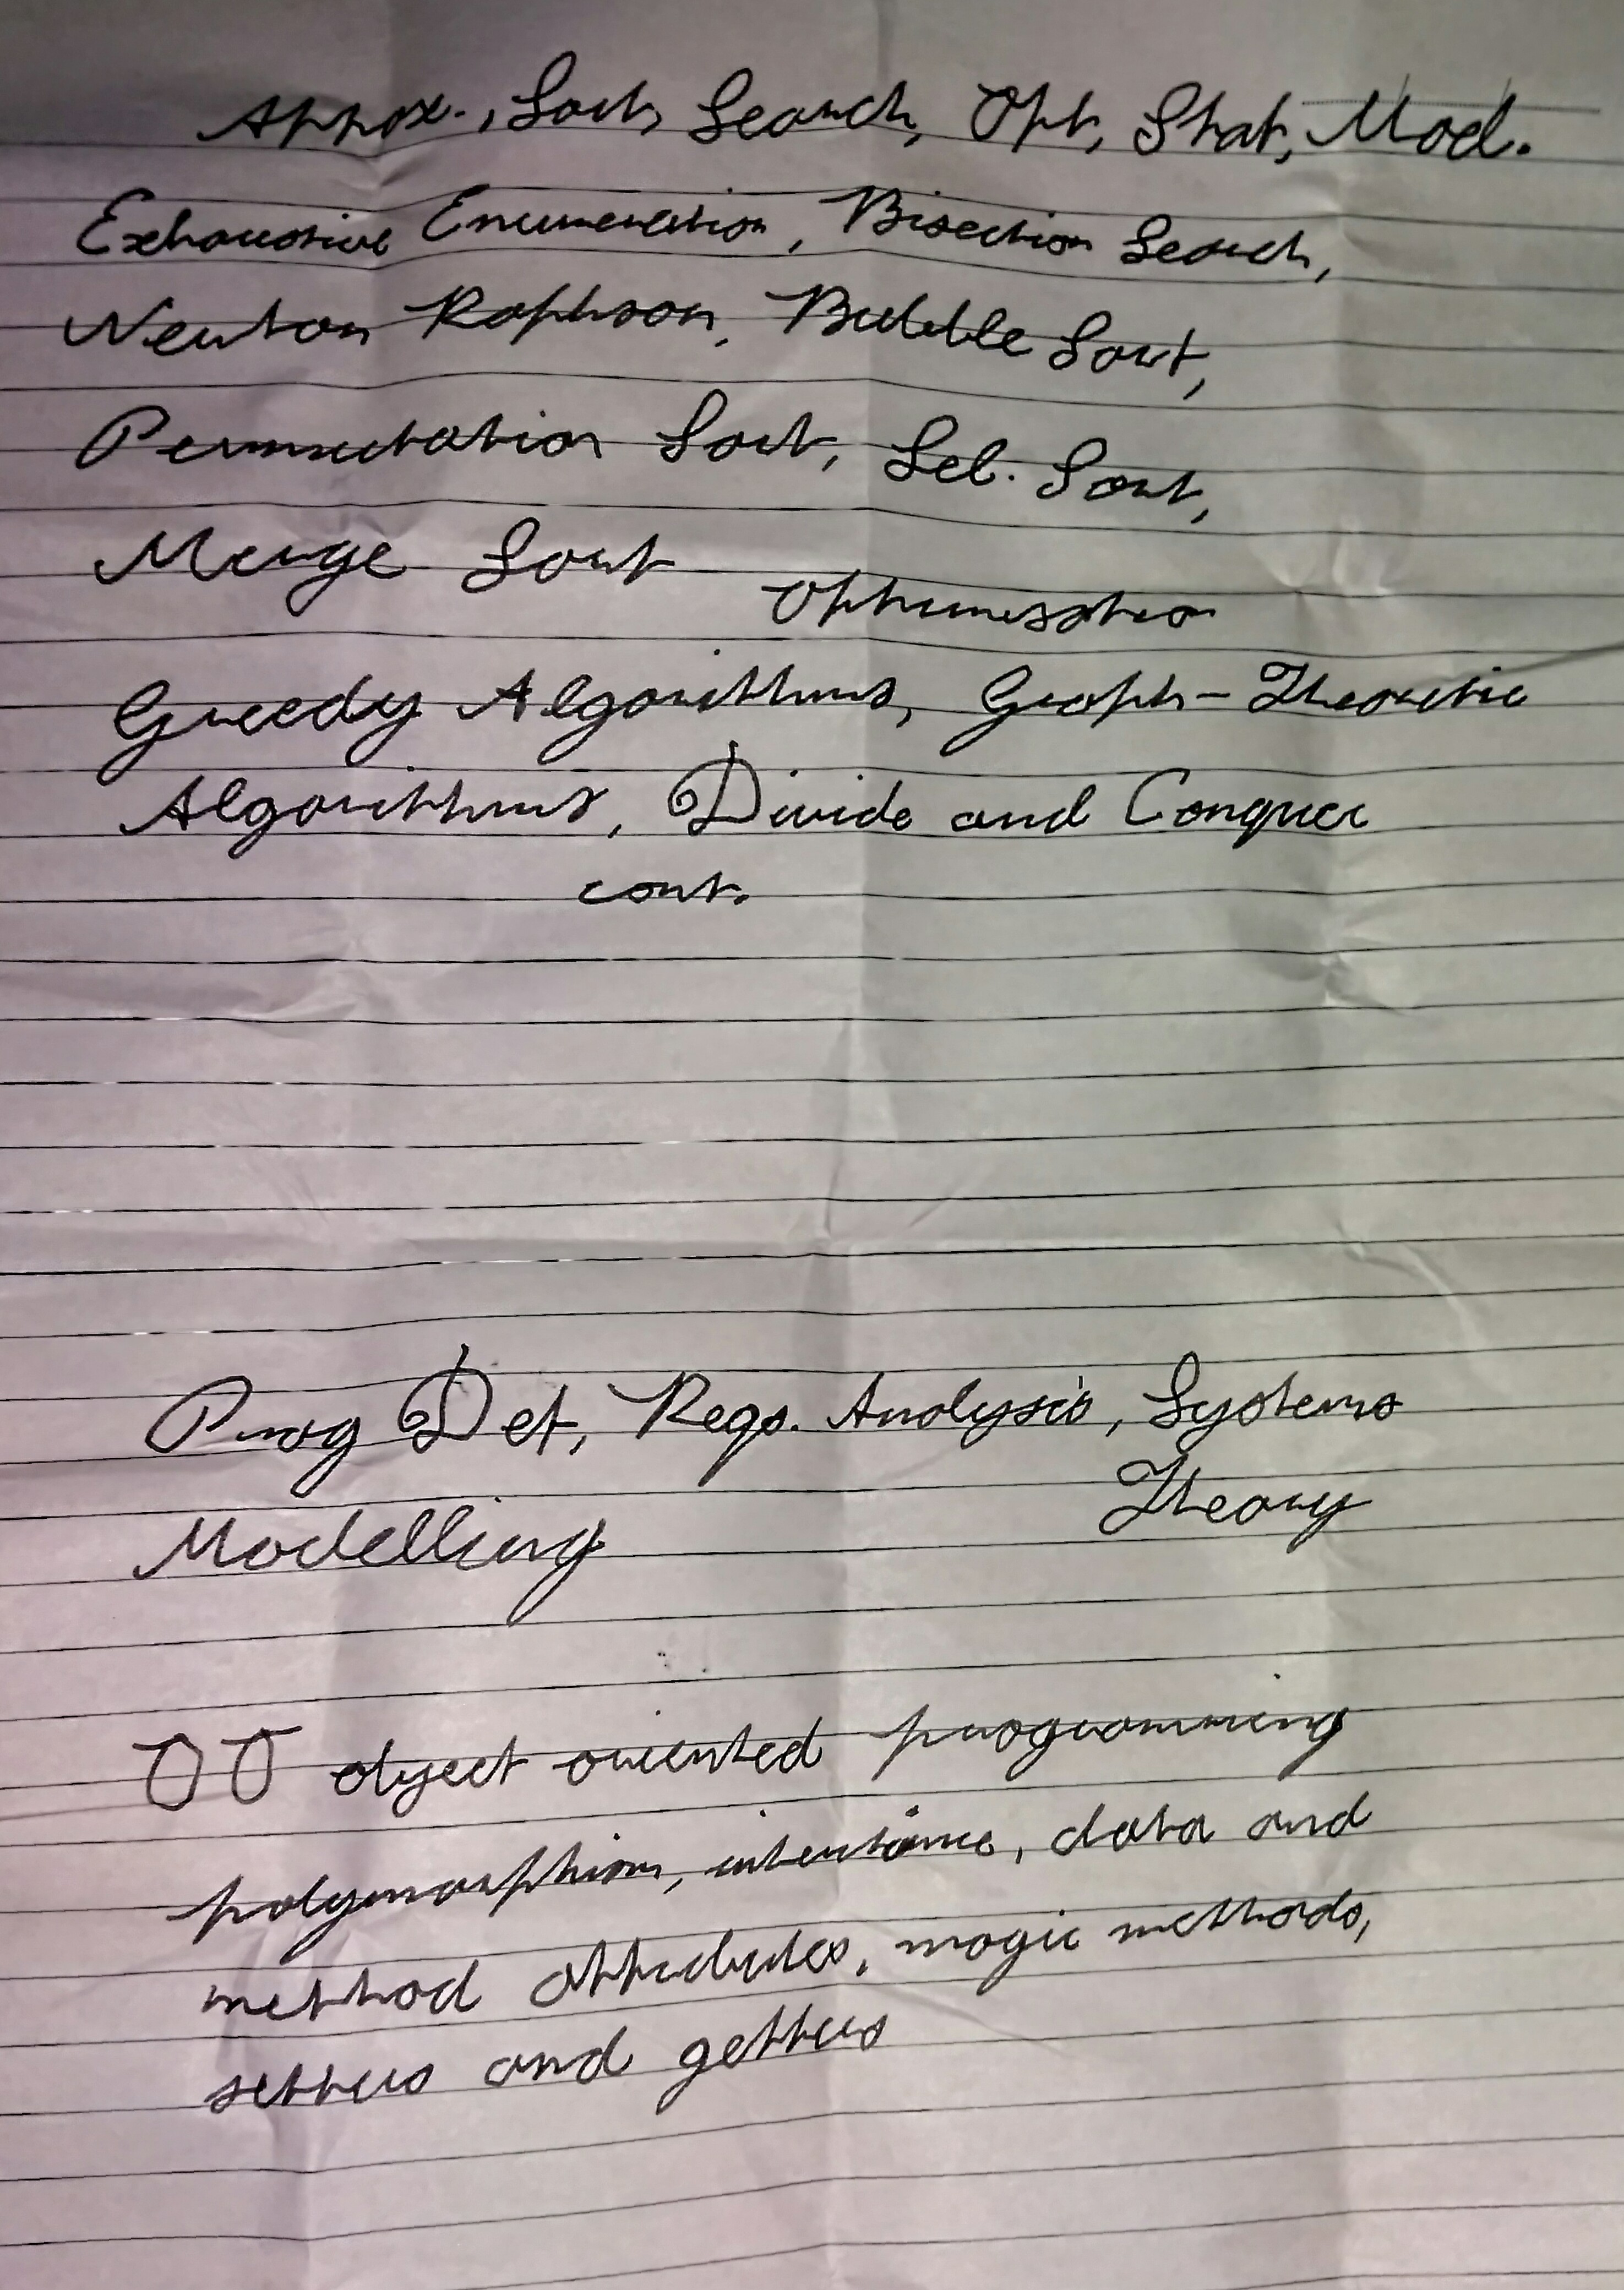 Approx., Sort, Search, Opt, Stat, Mod.
Exhaustive Enumeration, Bisection Search,
Newton Raphson, Bubble Sort,
Permutation Sort, Sel. Sort,
Merge Sort
Optimisation
Greedy Algorithms, Graph-Theoretic
Algorithms, Divide and Conquer
cont.
Prog Det, Reqs. Analysis, Systems
Theory
Modelling
OO object oriented programming
polymorphism, inheritance, data and
method attributes, magic methods,
setters and getters